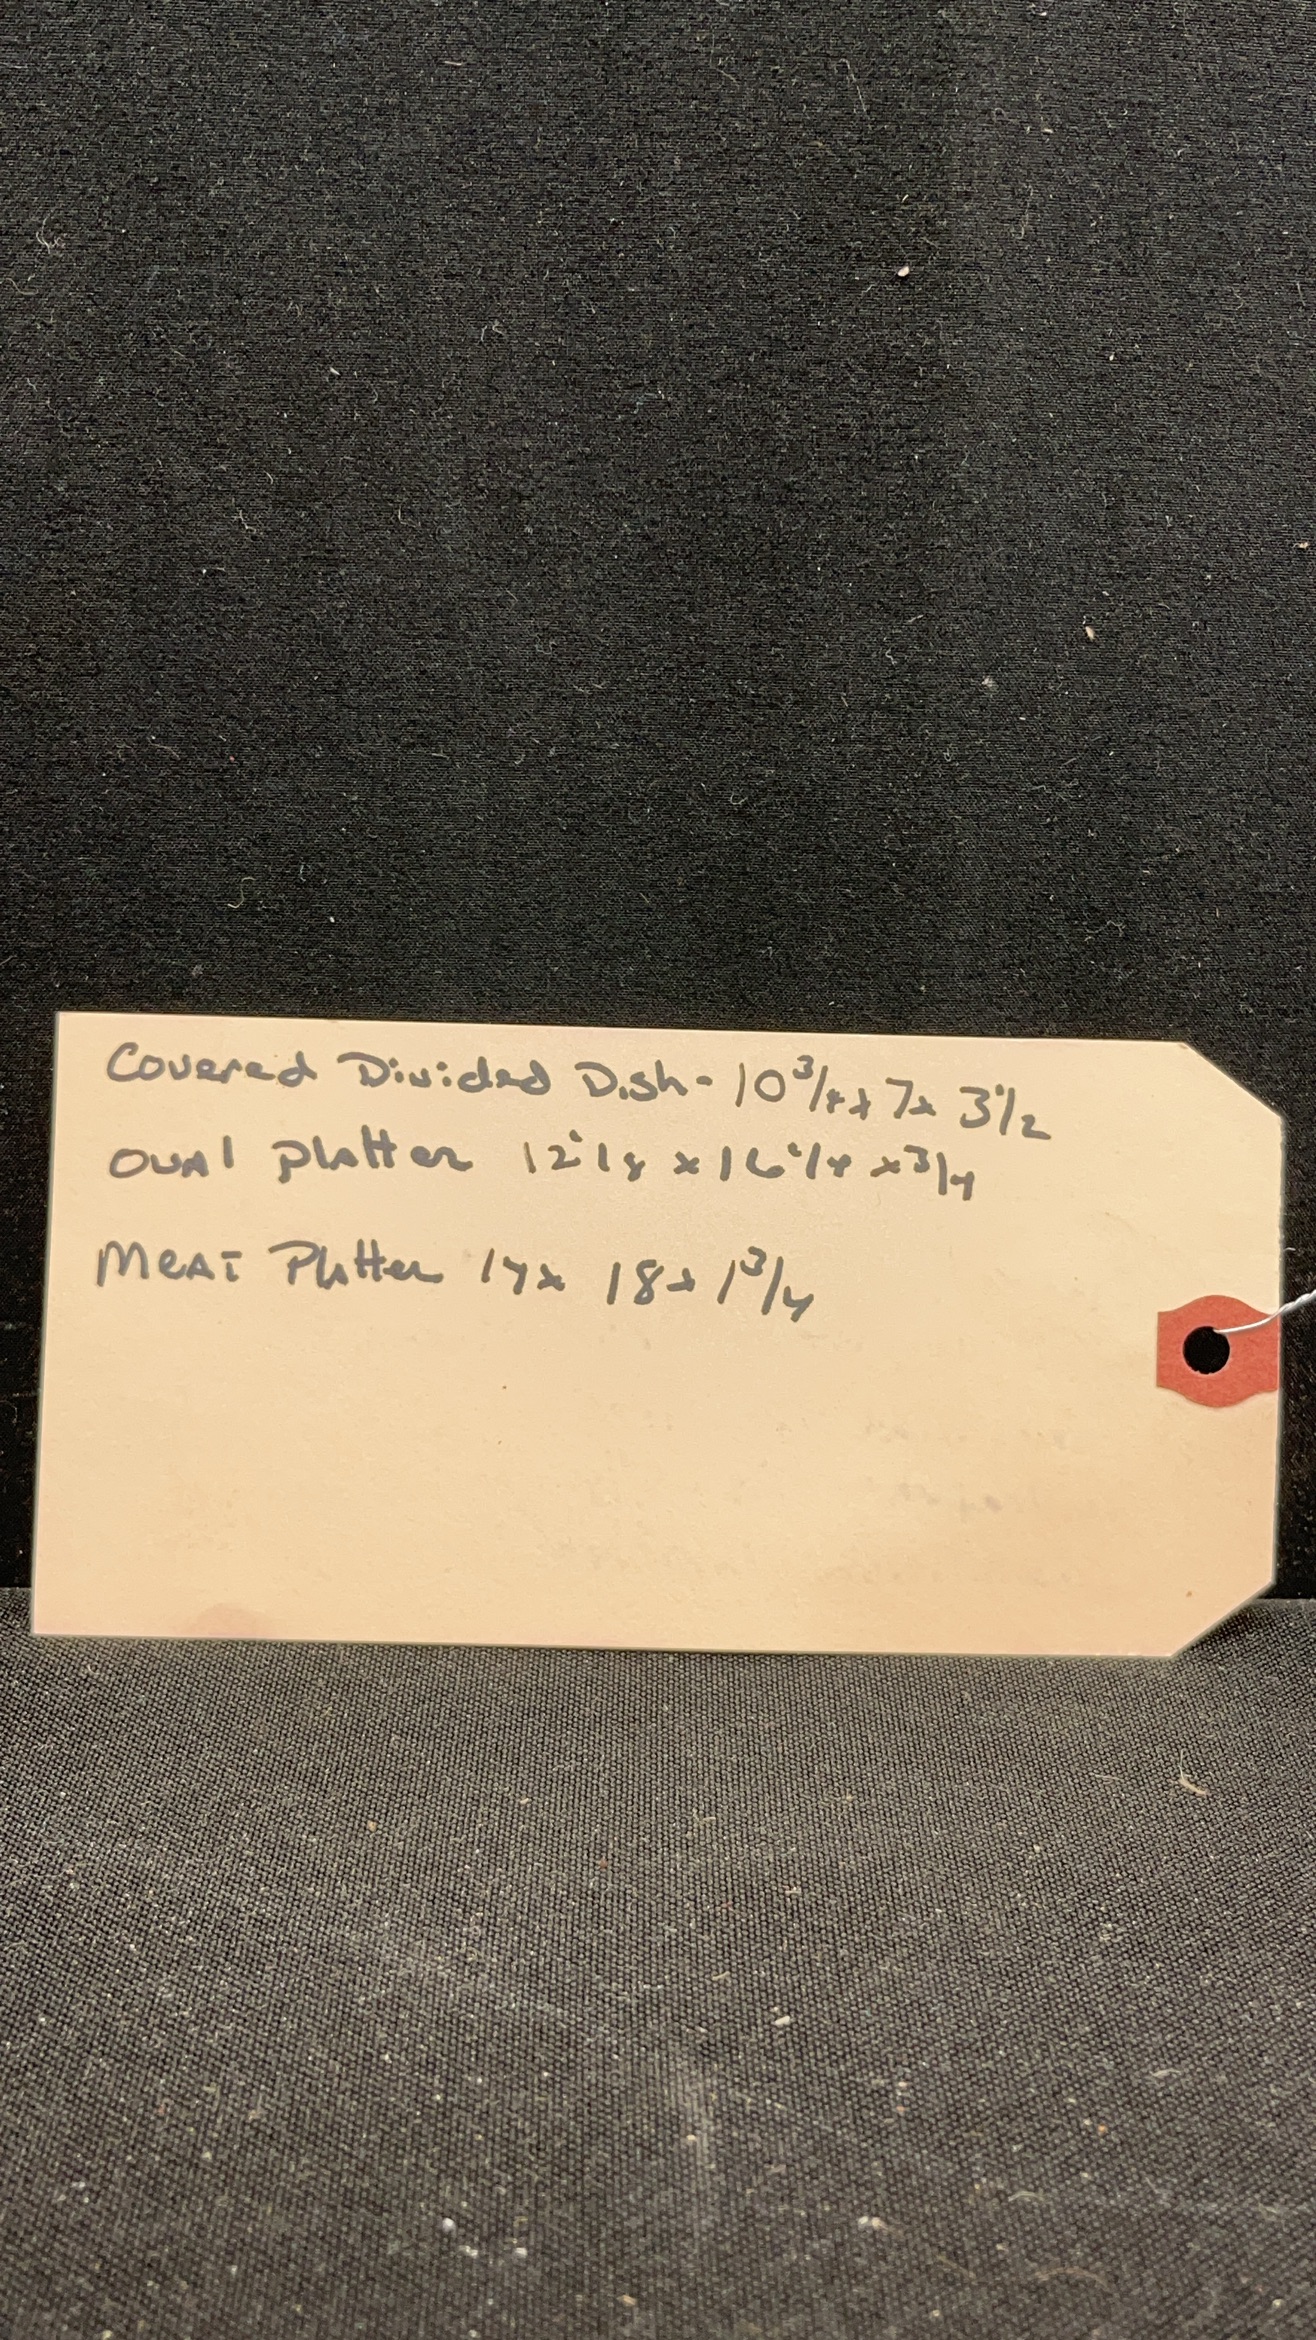 Covered Divided Dish - 10 3/4 x 7 x 3 1/2
Oval Platter 12 1/8 x 16 1/4 x 3/4
Meat Platter 14 x 18 x 1 3/4